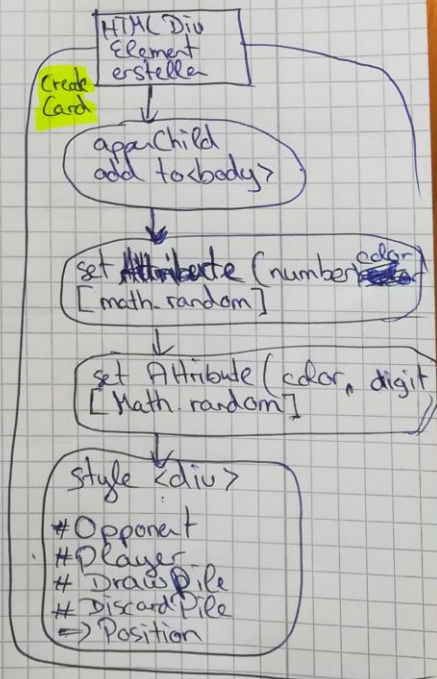 HTML Div
Element
erstellen
Create
Card
appenChild
add to <body>
set Attribute (number color
[math.random]
set Attribute (color, digit
[Math.random]
style <div>
#Opponent
#Player
# DrawPile
# DiscardPile
=> Position